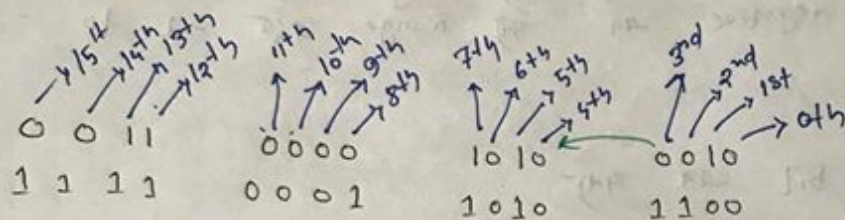 15th 14th 13th 12th 11th 10th 9th 8th 7th 6th 5th 4th 3rd 2nd 1st 0th
0 0 1 1 0 0 0 0 1 0 1 0 0 0 1 0
1 1 1 1 0 0 0 1 1 0 1 0 1 1 0 0